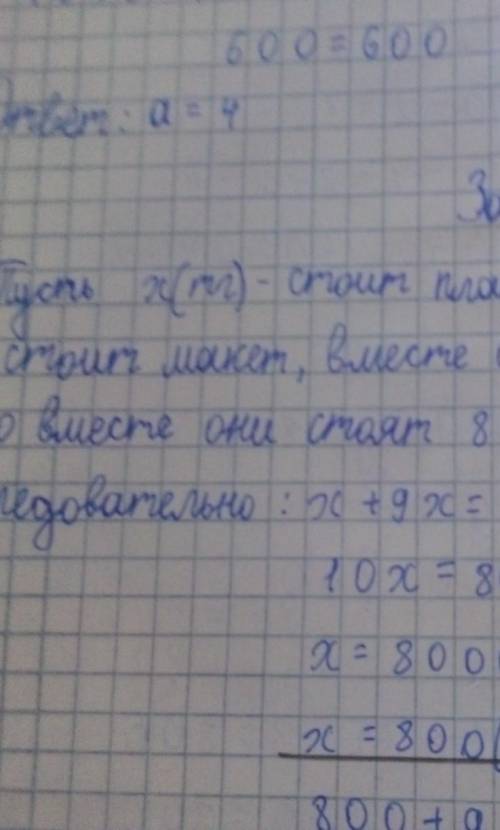 600 = 600
Ответ: a = 4
За
Пусть х(тг) - стоит пла
стоит макет, вместе
о вместе они стоят 8
ледовательно: х + 9х =
10х = 8
х = 800
х = 800(
800 + 9